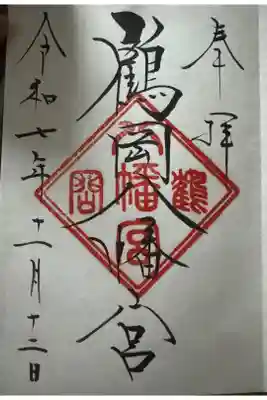 奉拝
鶴岡八幡宮
令和七年十一月十二日
鶴
八幡宮
岡